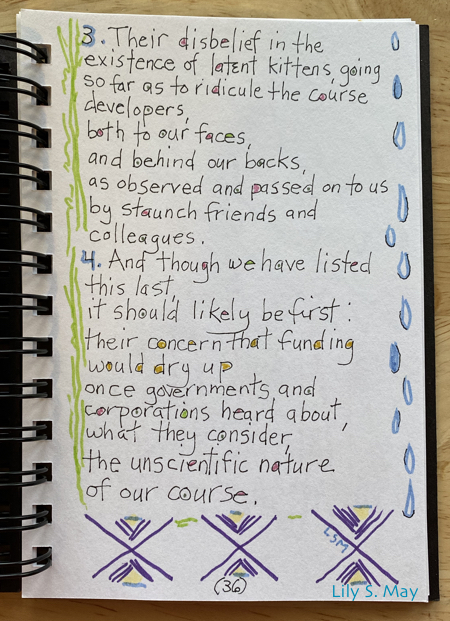 3. Their disbelief in the
existence of latent kittens, going
so far as to ridicule the course
developers,
both to our faces,
and behind our backs,
as observed and passed on to us
by staunch friends and
colleagues.
4. And though we have listed
this last,
it should likely be first:
their concern that funding
would dry up
once governments and
corporations heard about,
what they consider,
the unscientific nature
of our course.
LSM
(36)
Lily S. May